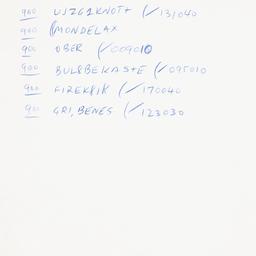 900 USZGIKNOTT (/131040
900 (MONDELAX
900 OBER (/009010
900 BULBBEKASTE (/095010
900 FIREK&IK (/170040
900 GRI, BENES (/123030